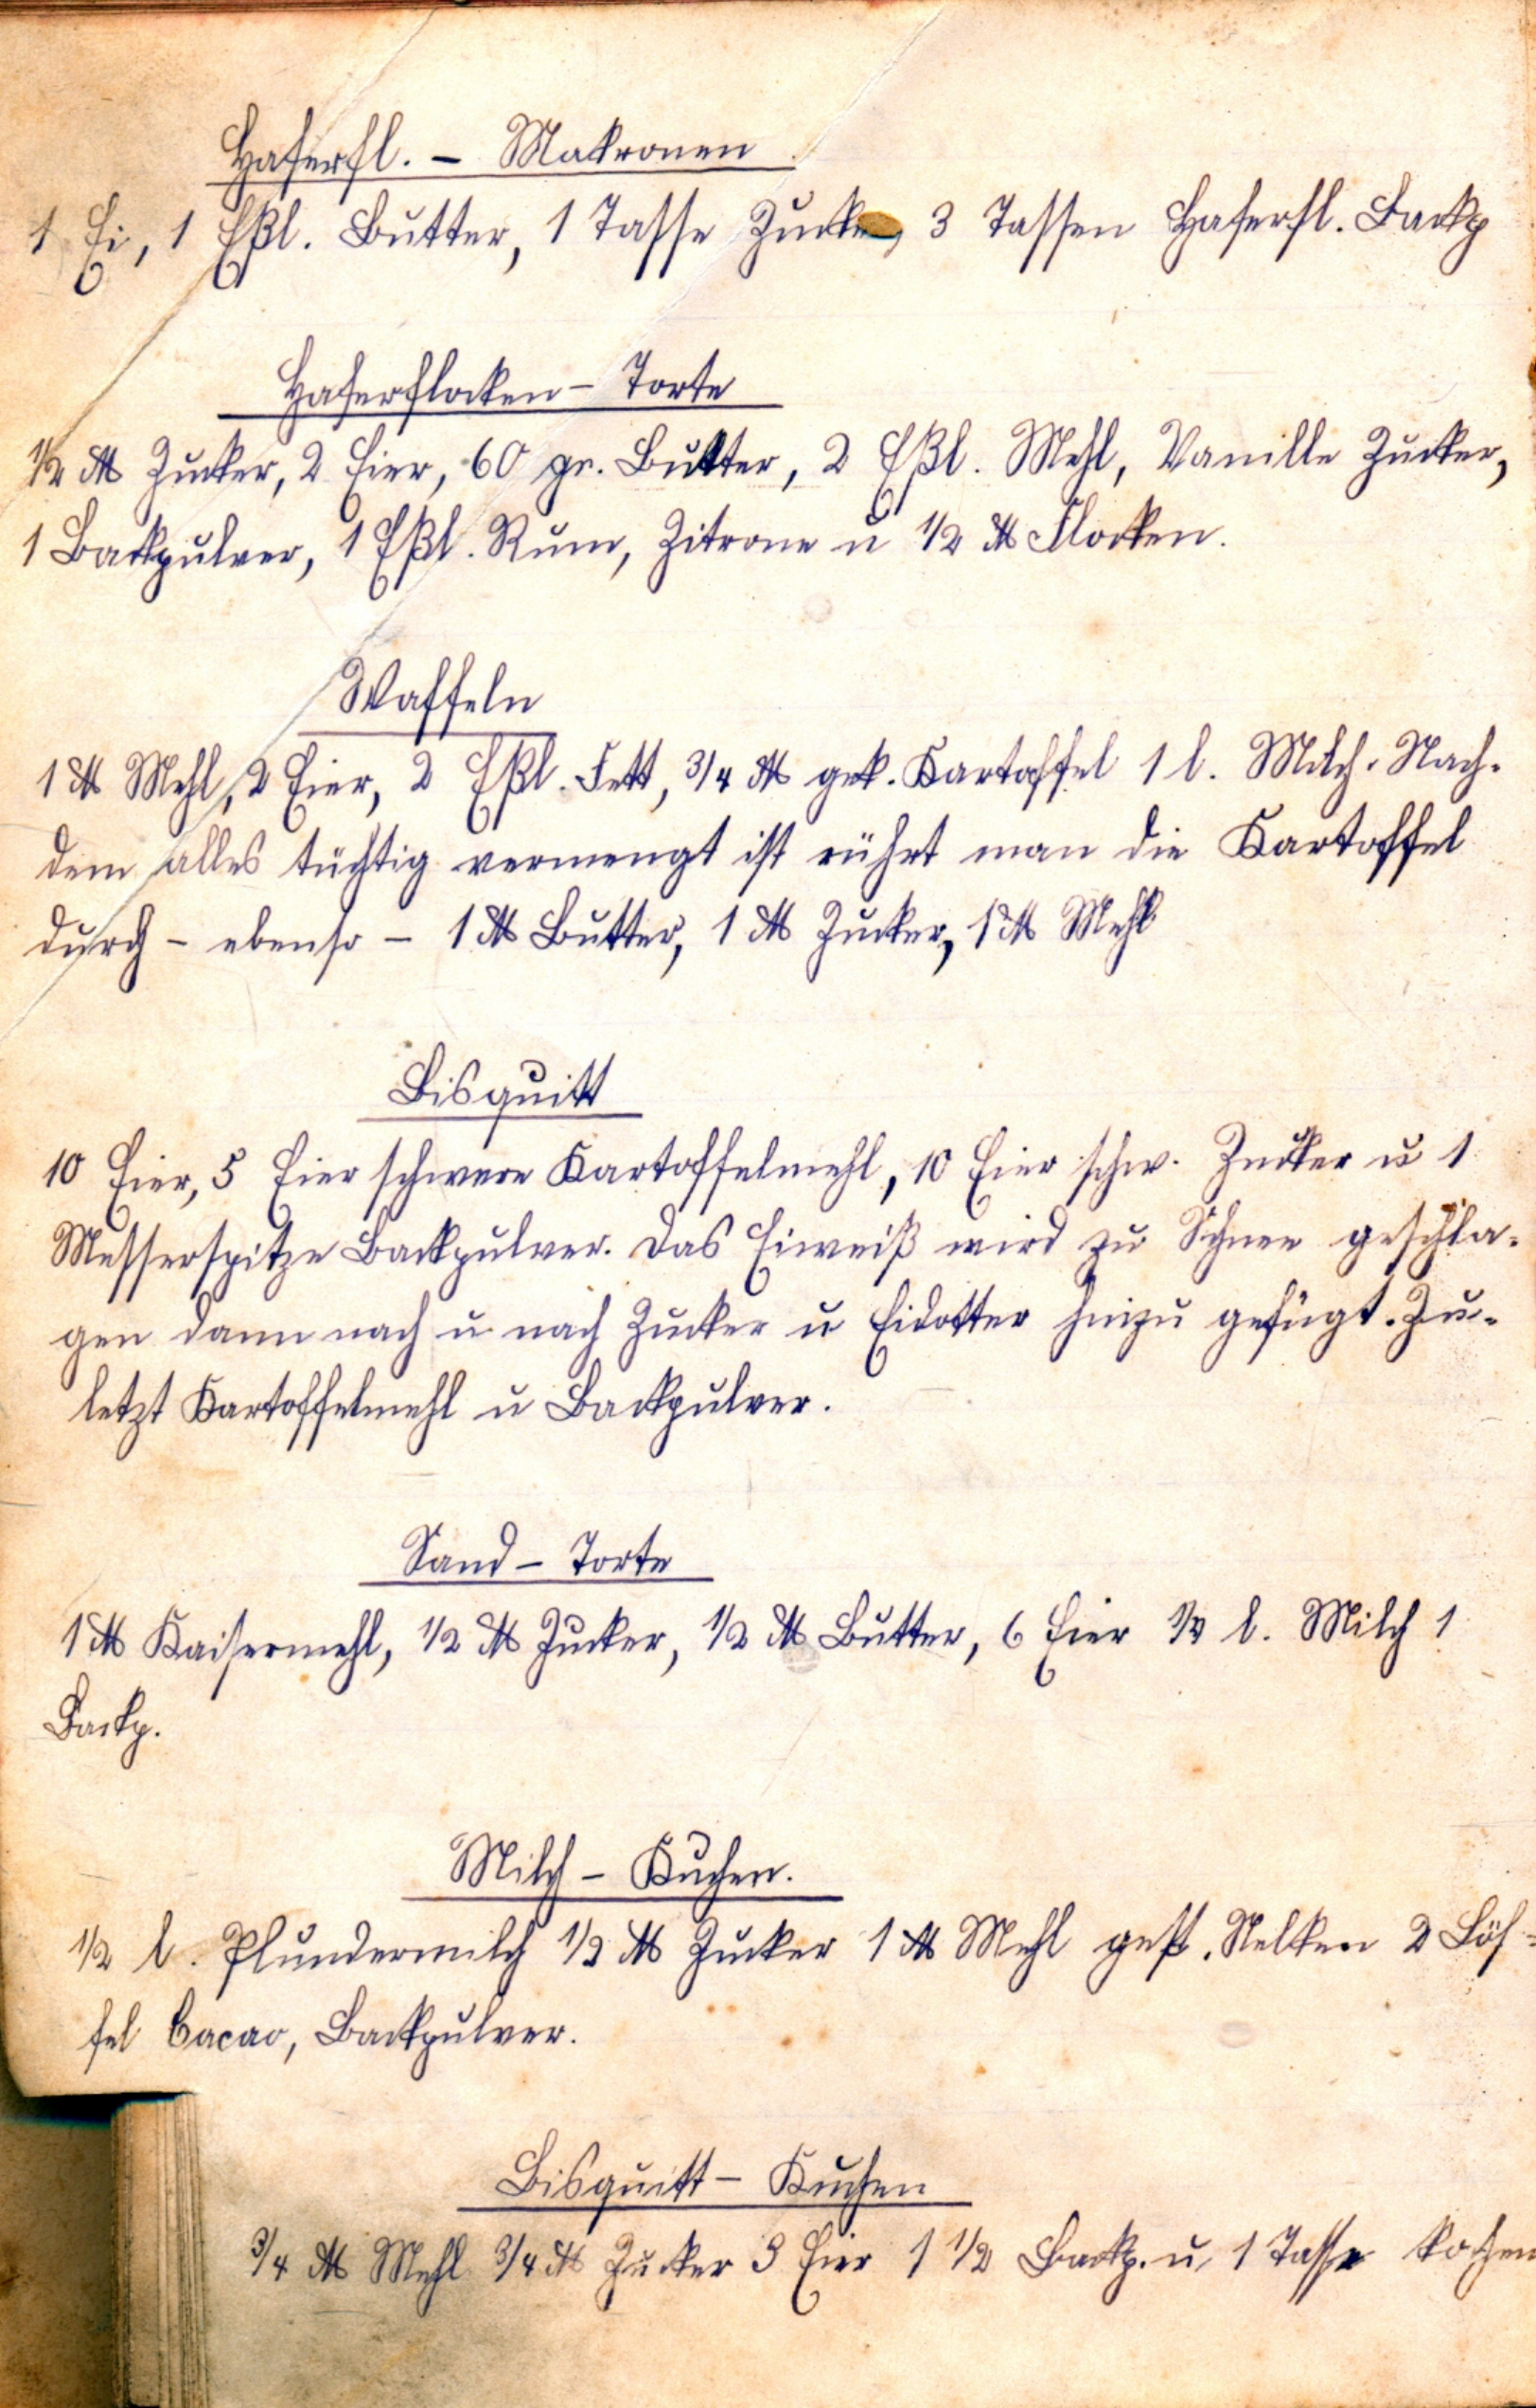 Haferfl. - Makronen.
1 Ei, 1 Eßl. Butter, 1 Tasse Zucker, 3 Tassen Haferfl. Backp
Haferflocken - Torte
1/2 ℔ Zucker, 2 Eier, 60 gr. Butter, 2 Eßl. Mehl, Vanille Zucker,
1 Backpulver, 1 Eßl. Rum, Zitrone u 1/2 ℔ Flocken.
Waffeln
1 ℔ Mehl, 2 Eier, 2 Eßl. Fett, 3/4 ℔ gek. Kartoffel 1 l. Milch. Nach-
dem alles tüchtig vermengt ist rührt man die Kartoffel
durch - ebenso - 1 ℔ Butter, 1 ℔ Zucker, 1 ℔ Mehl
Bisquitt
10 Eier, 5 Eier schwere Kartoffelmehl, 10 Eier schw. Zucker u 1
Messerspitze Backpulver. Das Eiweiß wird zu Schnee geschla-
gen dann nach u nach Zucker u Eidotter hinzu gefügt. Zu-
letzt Kartoffelmehl u Backpulver.
Sand - Torte
1 ℔ Kaisermehl, 1/2 ℔ Zucker, 1/2 ℔ Butter, 6 Eier l. Milch 1
Backp.
Milch - Kuchen.
1/2 l. Plundermilch 1/2 ℔ Zucker 1 ℔ Mehl gest. Nelken 2 Löf-
fel Cacao, Backpulver.
Bisquitt - Kuchen
3/4 ℔ Mehl 3/4 ℔ Zucker 3 Eier 1 1/2 Backp. u, 1 Tasse kochen